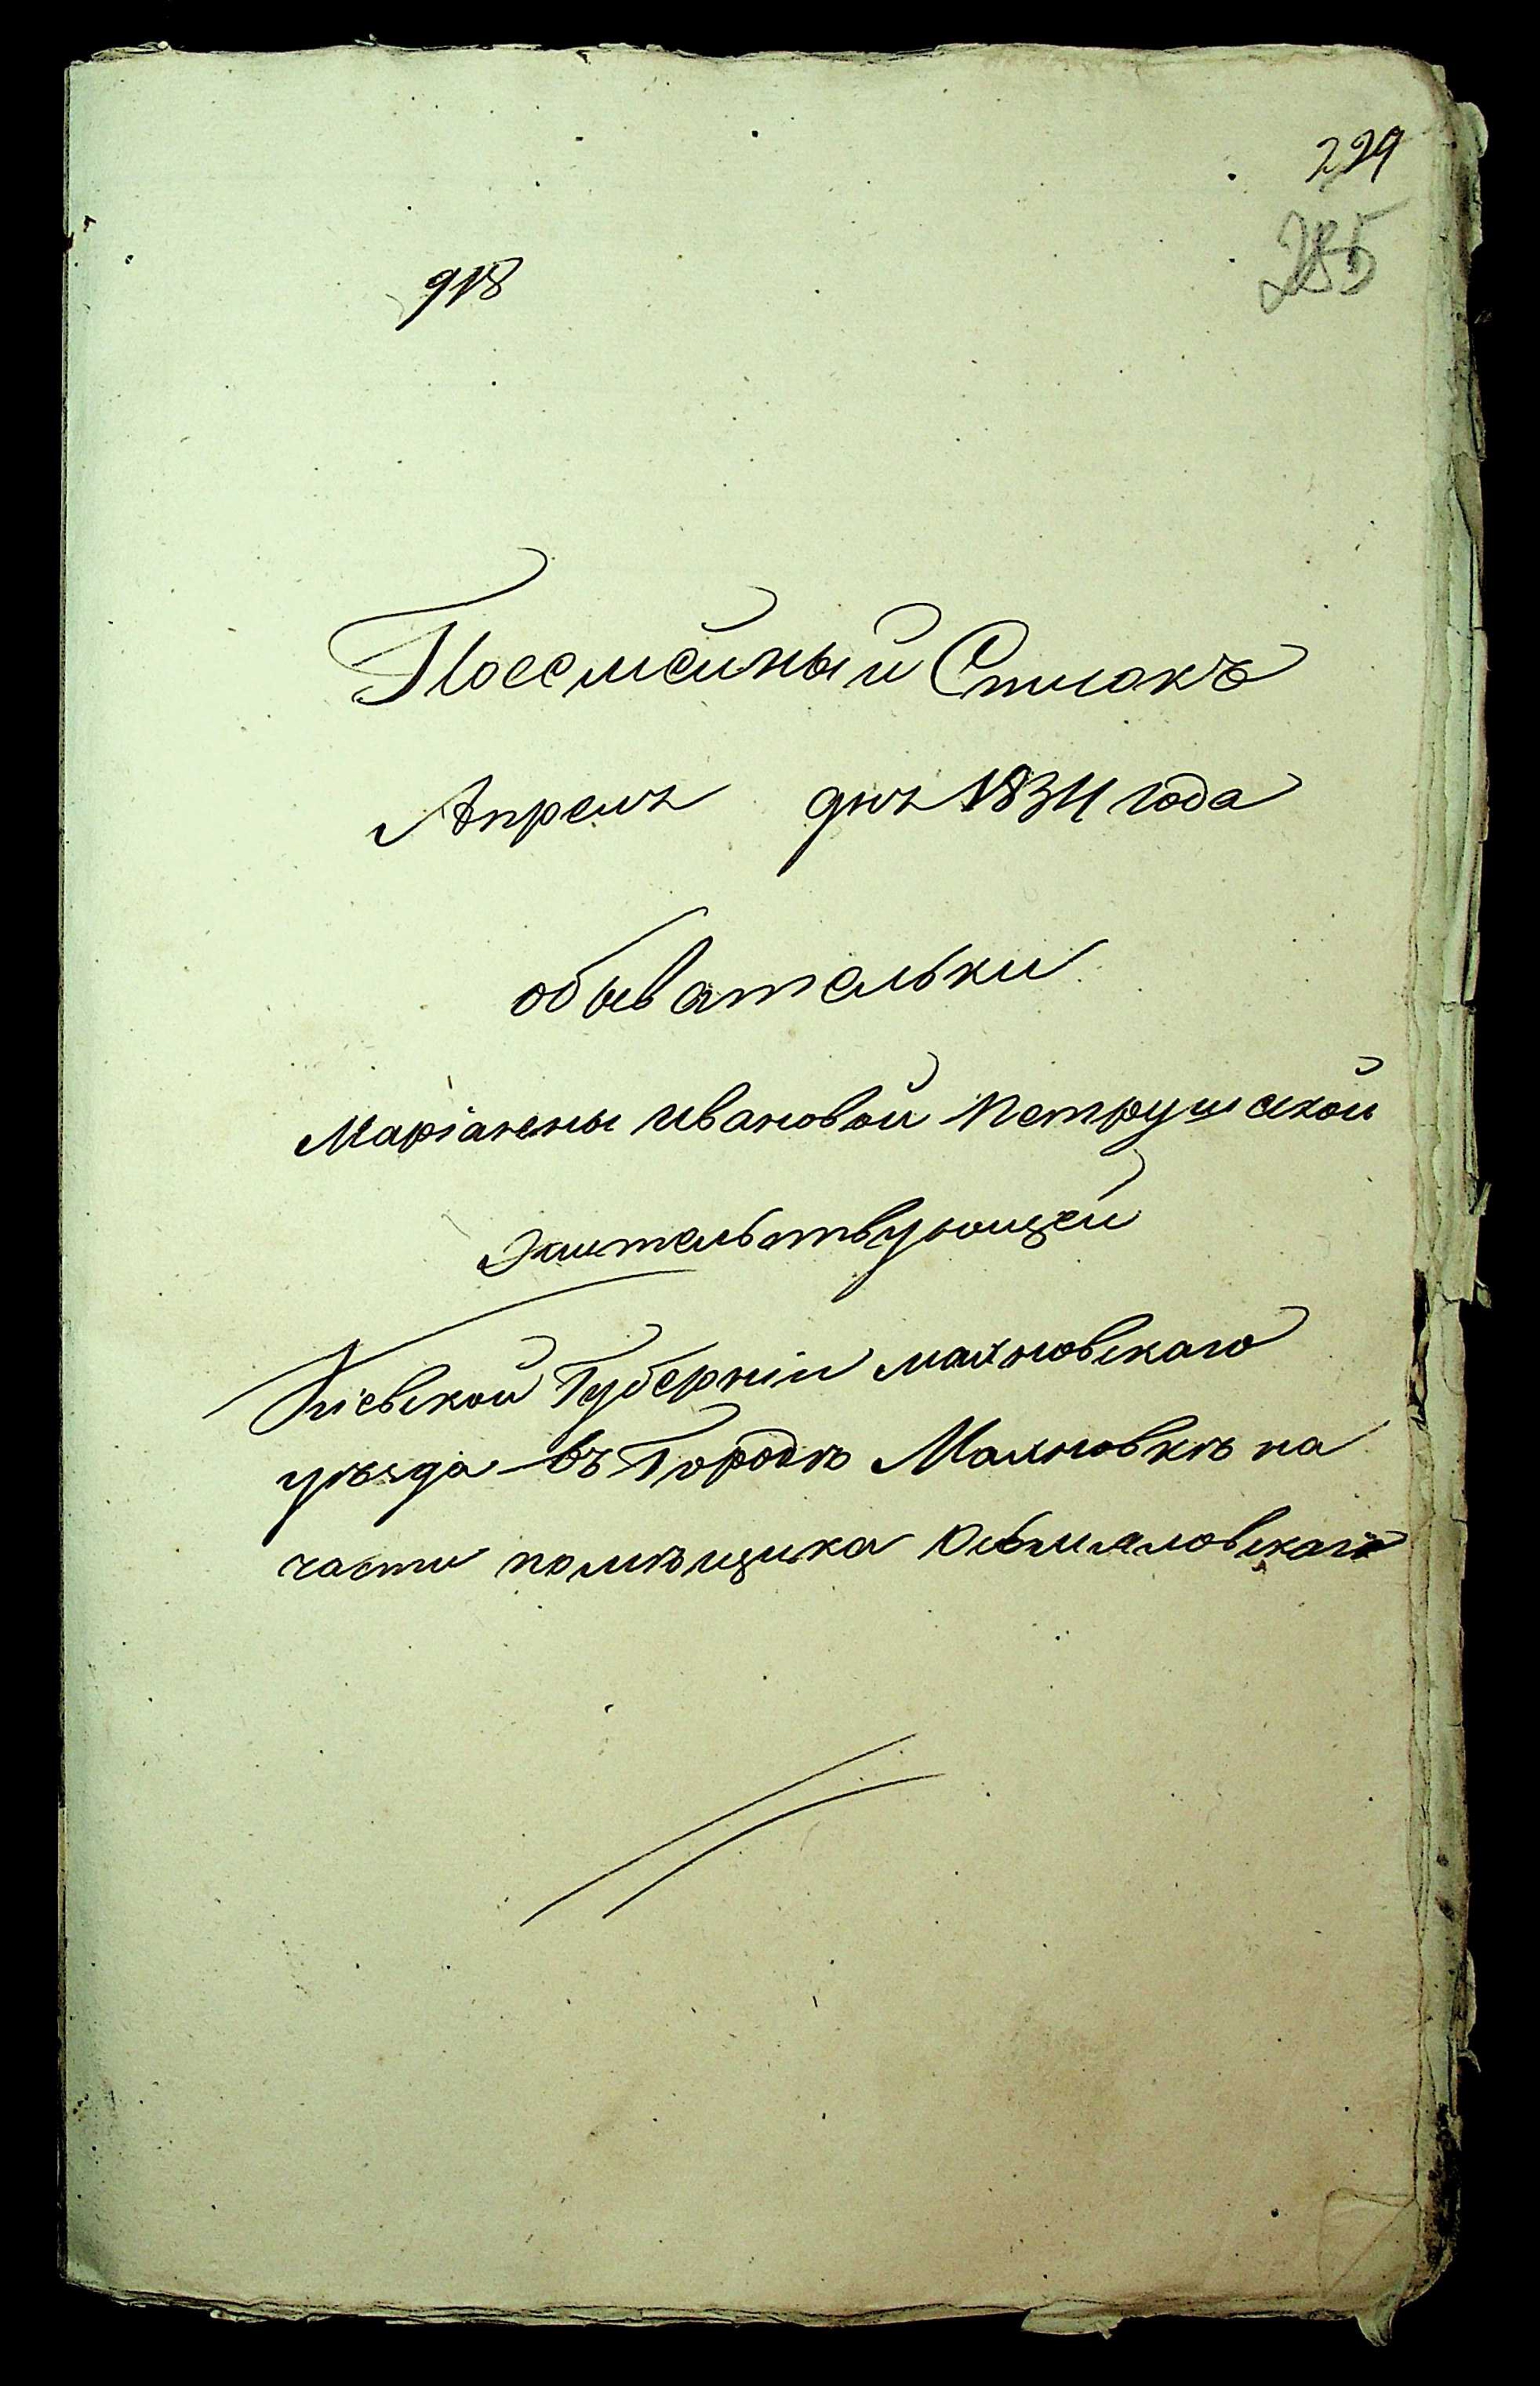 229
285
918
Посемейный Списокъ
Апреля дня 1834 года
обывательки
Маріанны Ивановой Петрушской
жительствующей
Кіевской Губерніи Махновскаго
уѣзда въ Городѣ Махновкѣ на
части помѣщика